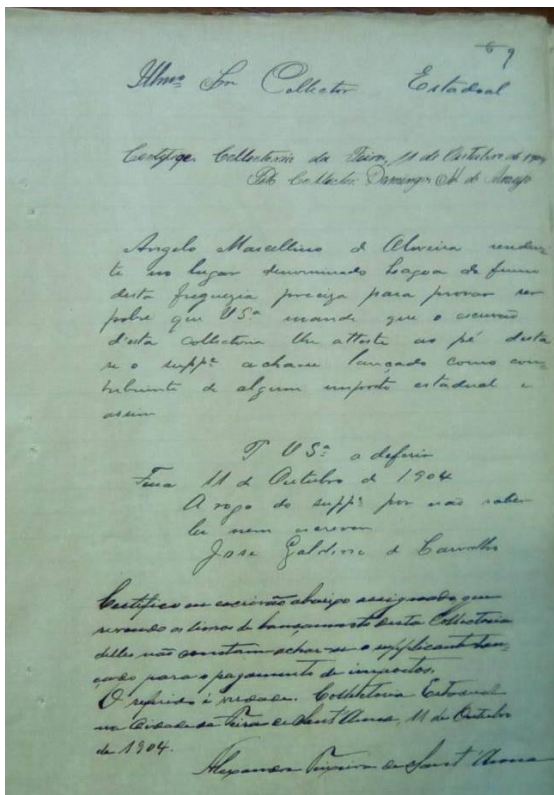 9
Illmo Snr Collector Estadoal
Certifique. Collectoria da Feira, 11 de Outubro de 1904
Collector Domingos de Araujo
Angelo Marcellino d Oliveira residen
te no lugar denominado Lagoa do fumo
desta freguezia preciza para provar ser
pobre que VSª mande que o escrivão
d'esta collectoria lhe atteste ao pé desta
se o suppe achase lançado como con
tribuinte de algum imposto estadual e
assim
P VSª a deferir
Feira 11 d Outubro d 1904
A rogo do suppe por não saber
ler nem escrever
José Galdino d Carvalho
Certifico eu escrivão abaixo assignado que
revendo os livros de lançamento desta Collectoria
delles não constam achar-se o supplicante lan-
çado para o pagamento de impostos.
O referido é verdade. Collectoria Estadual
na Cidade da Feira de Sant'Anna, 11 de Outubro
de 1904.
Alexandre Teixeira de Sant'Anna